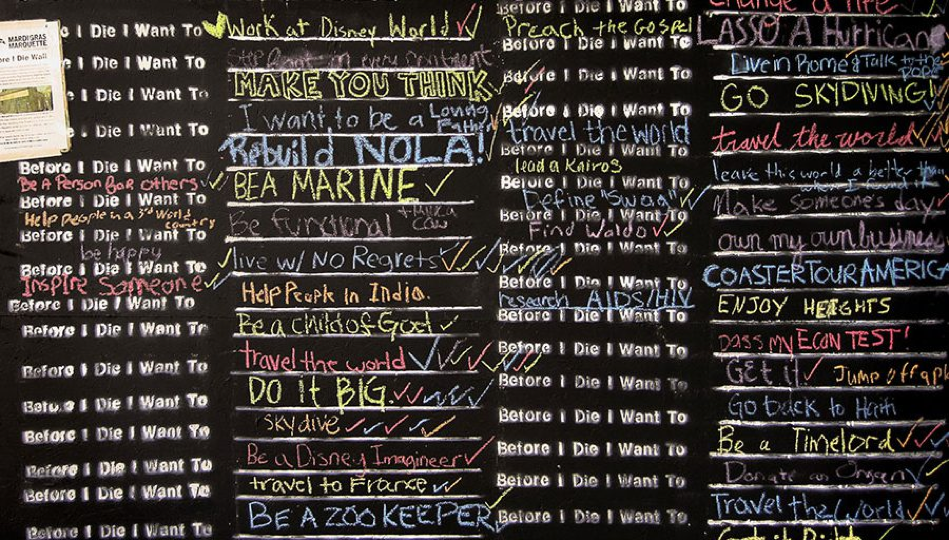 MARDI GRAS
MARQUETTE
re I Die Wall
I Die I Want To
Work at Disney World
Step foot on every continent
I Die I Want To
MAKE YOU THINK
e I Die I Want To
I want to be a Loving
Father
I Die I Want To
Rebuild NOLA!
Before I Die I Want To
BE A MARINE
Be A Person for others
Before I Die I Want To
Help people in a 3rd World
country
Be functional
+ milk a
cow
Before I Die I Want To
be happy
live w/ No Regrets
Before I Die I Want To
Inspire Someone
Help People In India.
Before I Die I Want To
Be a child of God
Before I Die I Want To
travel the world
Before I Die I Want To
DO It BIG
Before I Die I Want To
sky dive
Before I Die I Want To
Be a Disney Imagineer
Before I Die I Want To
travel to France
Before I Die I Want To
BE A ZOO KEEPER
Before I Die I Want To
Before I Die I Want To
Preach the Gospel
Before I Die I Want To
Before I Die I Want To
Before I Die I Want To
travel the world
Before I Die I Want To
lead a Kairos
Before I Die I Want To
Define "Swag"
Before I Die I Want To
Find Waldo
Before I Die I Want To
Before I Die I Want To
research AIDS/HIV
Before I Die I Want To
Before I Die I Want To
Before I Die I Want To
Before I Die I Want To
Before I Die I Want To
Before I Die I Want To
Before I Die I Want To
change a life
LASSO A Hurricane
Live in Rome & Talk to the
POPE
GO SKYDIVING!
travel the world
leave this world a better than
when I found it
Make someone's day
own my own business
COASTER TOUR AMERIC
ENJOY HEIGHTS
pass my ECON TEST!
Get it
Jump off a pl
Go back to Haiti
Be a Timelord
Donate an Organ
Travel the World
Get it Right